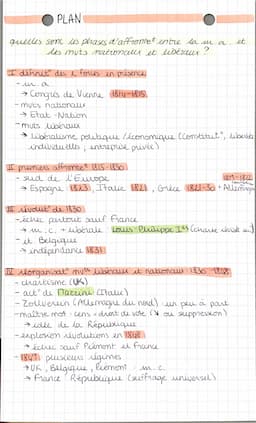 PLAN
quelles sont les phases d'affrontᵗ entre la m. a. et
les mvts nationaux et libéraux ?
I définitᵒ des 2 forces en présence
- m. a
→ Congrès de Vienne 1814-1815
- mvts nationaux
→ Etat-Nation
- mvts libéraux
→ libéralisme politique/économique (Constitutᵒ, libertés
individuelles, entreprise privée)
II premiers affrontᵗ 1815-1830
- sud de l'Europe
→ Espagne 1823, Italie 1821, Grèce 1821-30 + Allemagne
III révolutᵒ de 1830
- échec partout sauf France
→ m. c. + libérale : Louis Philippe Iᵉʳ
- et Belgique
→ indépendance 1831
IV réorganisatᵒ mvᵗˢ libéraux et nationaux 1830-1848
- chartisme (UK)
- actᵒ de Mazzini (Italie)
- Zollverein (Allemagne du nord) : un peu à part
- maître mot : cens = droit de vote (↘ ou suppression)
→ idée de la République
- explosion révolutions en 1848
→ échec sauf Piémont et France
- 1849 plusieurs régimes
→ UK, Belgique, Piémont : m. c.
→ France : République (suffrage universel)